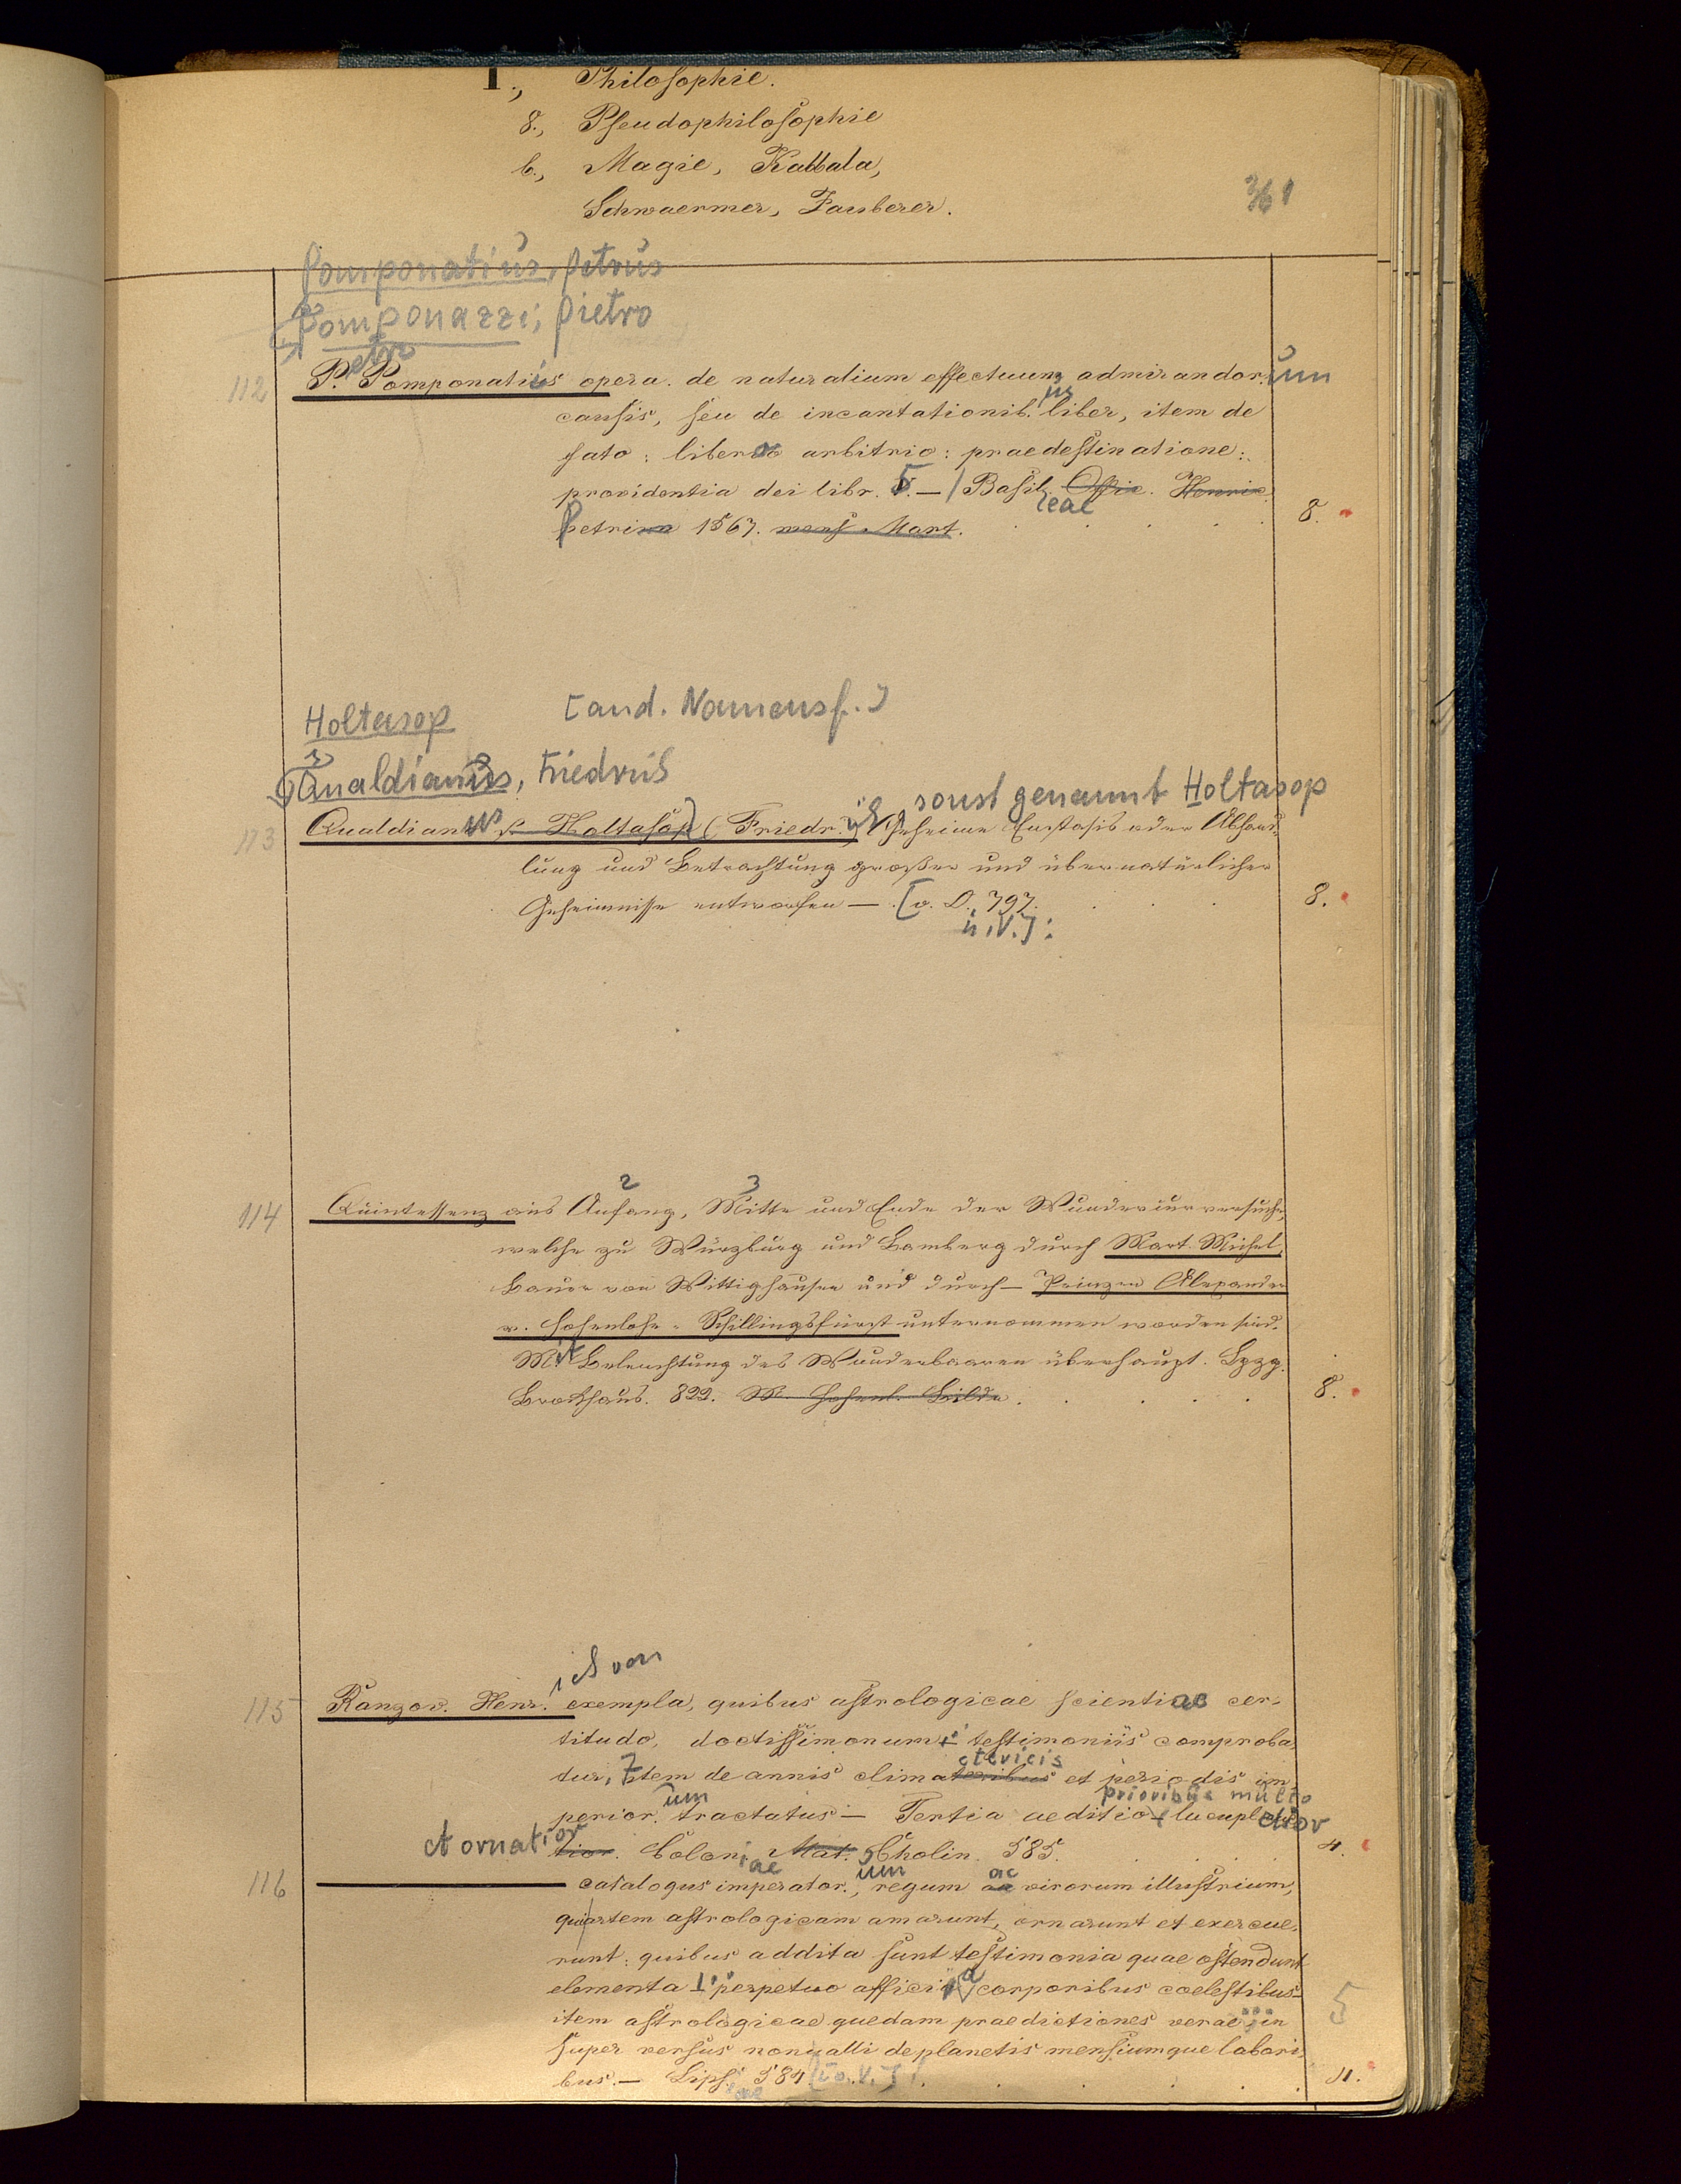 I., Philosophie.
8., Pseudophilosophie
b., Magie, Kabbala,
Schwaermer, Zauberer.
361
Pomponatius, Petrus
Pomponazzi, Pietro
etr
112 P. Pomponatius opera. de naturalium effectuum admirandor. um
us
causis, seu de incantationib. liber, item de
fato: libero arbitrio: praedestinatione:
providentia dei libr. 5. — / Basil. Offic. Henric
leae
Petrin 1567. mens. Mart. 8.
Holtasop [and. Namensf.]
Qualdianus, Friedrich
sonst genannt Holtasop
113 Qualdianus s. Holtasop (Friedr.) Geheime Ecstasis oder Abhand-
lung und Betrachtung großer und übernatürlicher
Geheimnisse entworfen — . [o. O. 797. 8.
u. V.]:
2 3
114 Quintessenz aus Anfang, Mitte und Ende der Wundercurversuche,
welche zu Würzburg und Bamberg durch Mart. Michel,
Bauer von Wittighausen und durch — Prinzen Alexander
v. Hohenlohe-Schillingsfürst unternommen worden sind.
Mit Beleuchtung des Wunderbaaren überhaupt. Lpzg.
Brockhaus. 822. M. Hohenl. Bilde. 8.
ich von
115 Ranzov. Henr. exempla, quibus astrologicae scientiae cer-
titudo, doctissimorum testimoniis comproba-
ctericis
tur, Item de annis climateribus et periodis im-
um prioribus multo
perior. tractatus — Tertia aeditio lucuplectior
et ornatior tior. Colon. Mat. Cholin. 585. 4.
iae um ac
116 ——— catalogus imperator., regum ac virorum illustrium,
qui artem astrologicam amarunt, ornarunt et exercue-
runt: quibus addita sunt testimonia quae ostendunt
elementa perpetuo affici a corporibus coelestibus
item astrologicae quedam praedictiones verae; in
5
super versus nonnulli de planetis mensiumque labori-
bus. — Lips. 584 [o. V.] 11.
iae